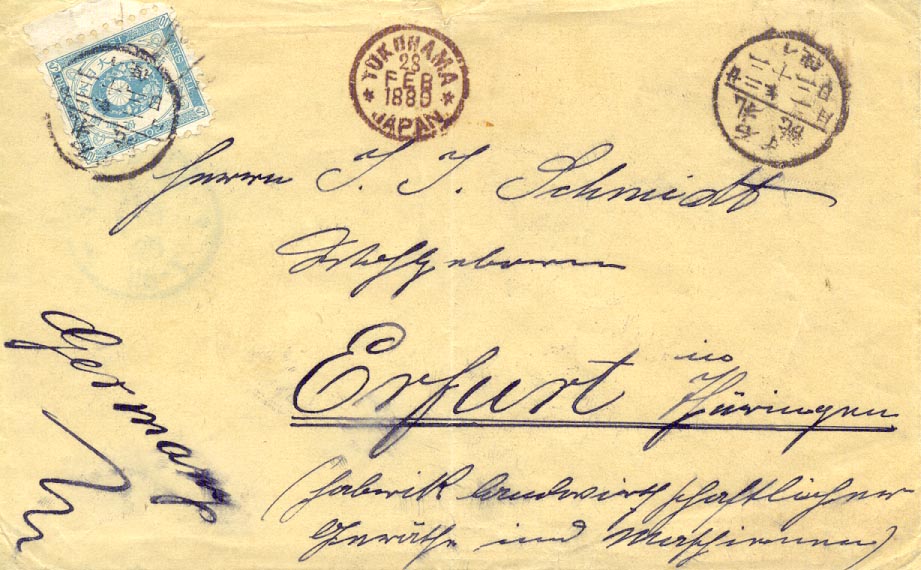 YOKOHAMA
28
FEB
1889
JAPAN
Herrn J. J. Schmidt
Wohlgeboren
Erfurt in Thüringen
Germany
(Fabrik landwirthschaftlicher
Geräthe und Maschienen)